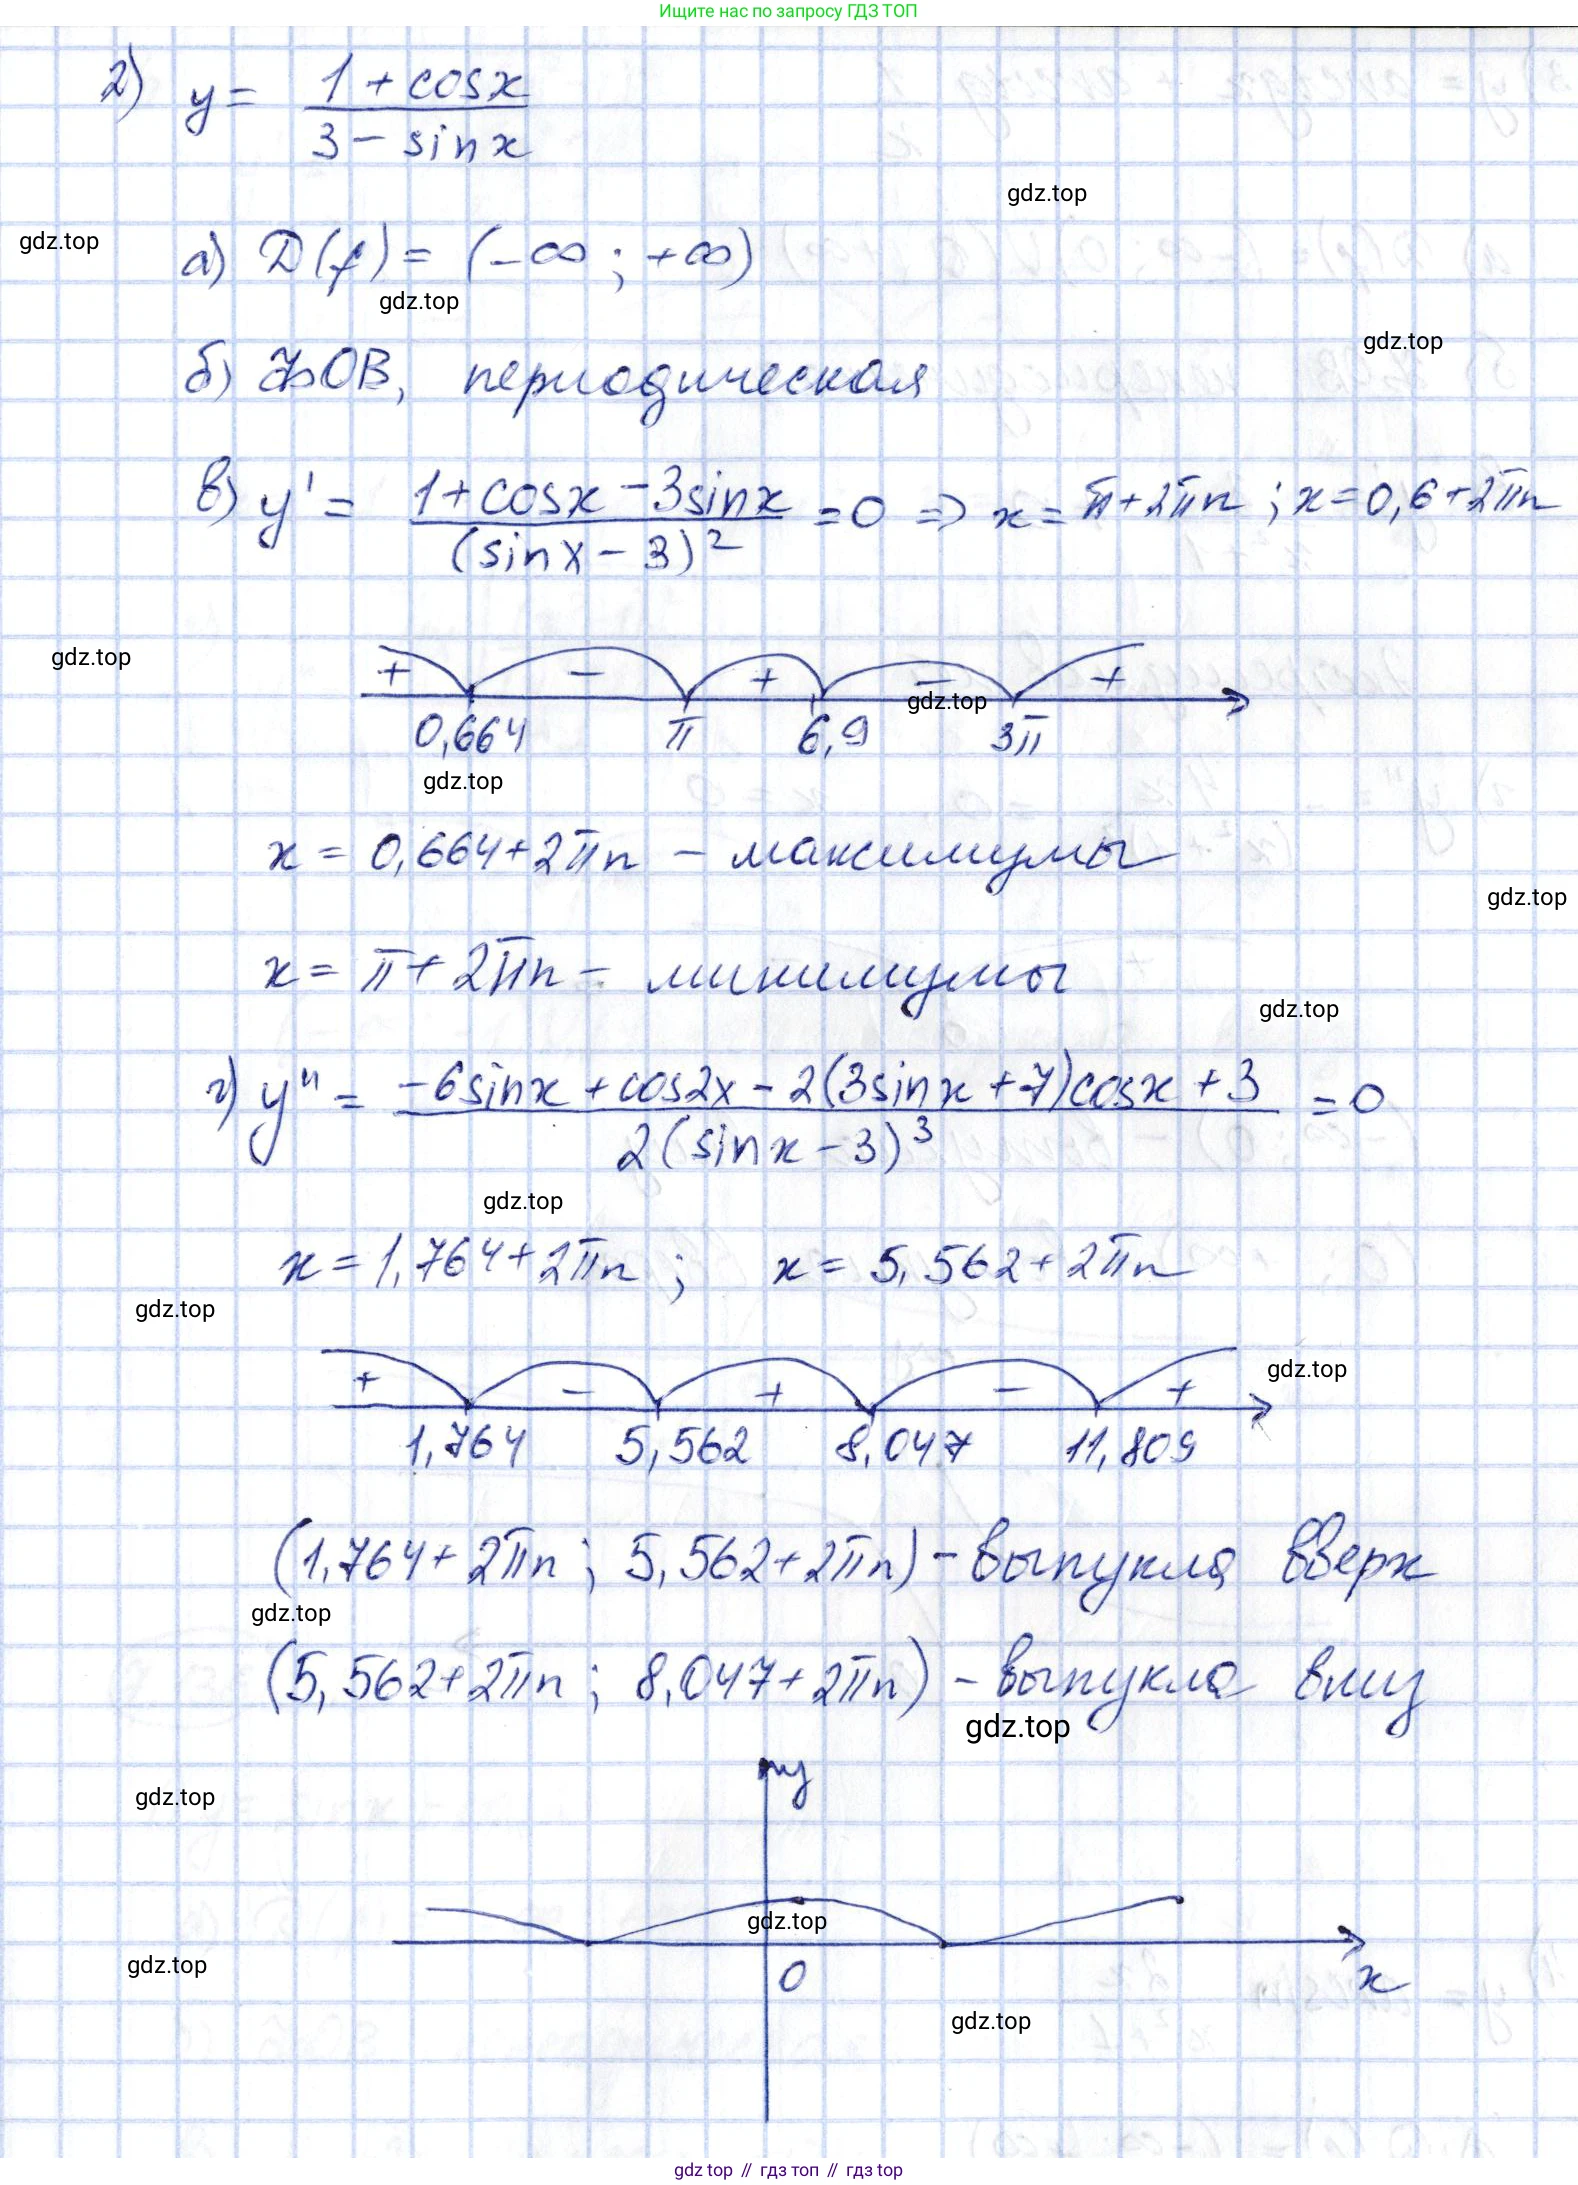 Ищите нас по запросу ГДЗ ТОП
2) y = (1 + cosx)/(3 - sinx)
gdz.top
gdz.top
а) D(f) = (-∞; +∞)
gdz.top
gdz.top
б) ФОВ, периодическая
в) y' = (1 + cosx - 3sinx)/(sinx - 3)² = 0 => x = π + 2πn; x = 0,6 + 2πn
gdz.top
+ - + - +
gdz.top
0,664 π 6,9 3π
gdz.top
x = 0,664 + 2πn - максимумы
gdz.top
x = π + 2πn - минимумы
gdz.top
г) y'' = (-6sinx + cos2x - 2(3sinx + 7)cosx + 3)/(2(sinx - 3)³) = 0
gdz.top
x = 1,764 + 2πn; x = 5,562 + 2πn
gdz.top
gdz.top
+ - + - +
1,764 5,562 8,047 11,809
(1,764 + 2πn; 5,562 + 2πn) - выпукла вверх
gdz.top
(5,562 + 2πn; 8,047 + 2πn) - выпукла вниз
gdz.top
y
gdz.top
gdz.top
gdz.top
0 x
gdz.top
gdz top // гдз топ // гдз top